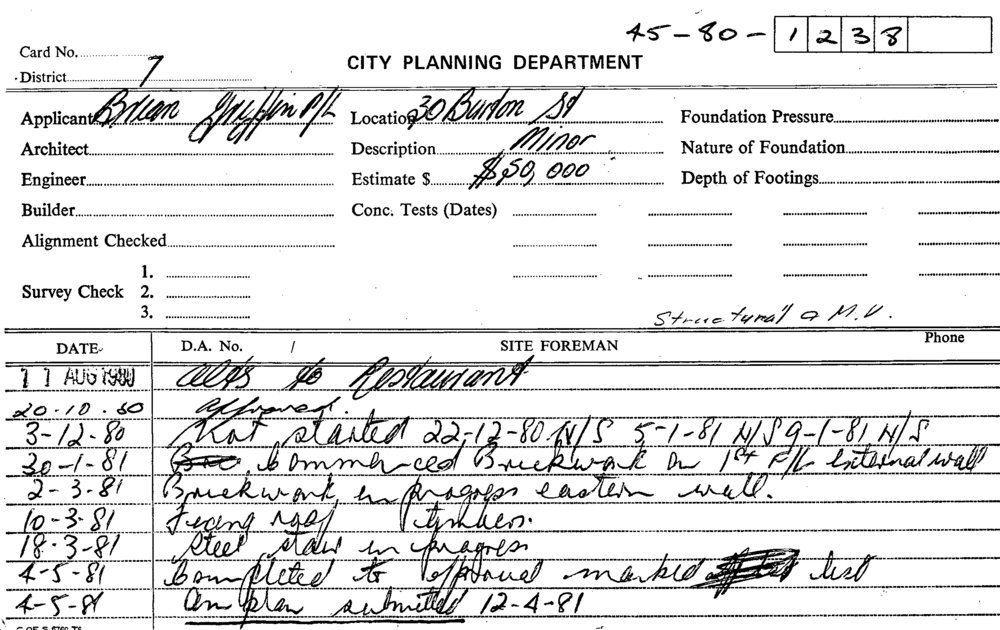 45-80-1238
Card No.
District 7
CITY PLANNING DEPARTMENT
Applicant Brian Griffin P/L Location 30 Burton St Foundation Pressure
Architect Description Minor Nature of Foundation
Engineer Estimate $ $50,000 Depth of Footings
Builder Conc. Tests (Dates)
Alignment Checked
1.
Survey Check 2.
3.
Structural & M.V.
DATE D.A. No. / SITE FOREMAN Phone
11 AUG 1980 Alts to Restaurant
20-10-80 Approved.
3-12-80 Not started 22-12-80 N/S 5-1-81 N/S 9-1-81 N/S
30-1-81 Commenced Brickwork on 1st F/L External wall
2-3-81 Brickwork in progress eastern wall.
10-3-81 Fixing roof timbers.
18-3-81 Steel stair in progress
4-5-81 Completed to approval marked list
4-5-81 On plan submitted 12-4-81